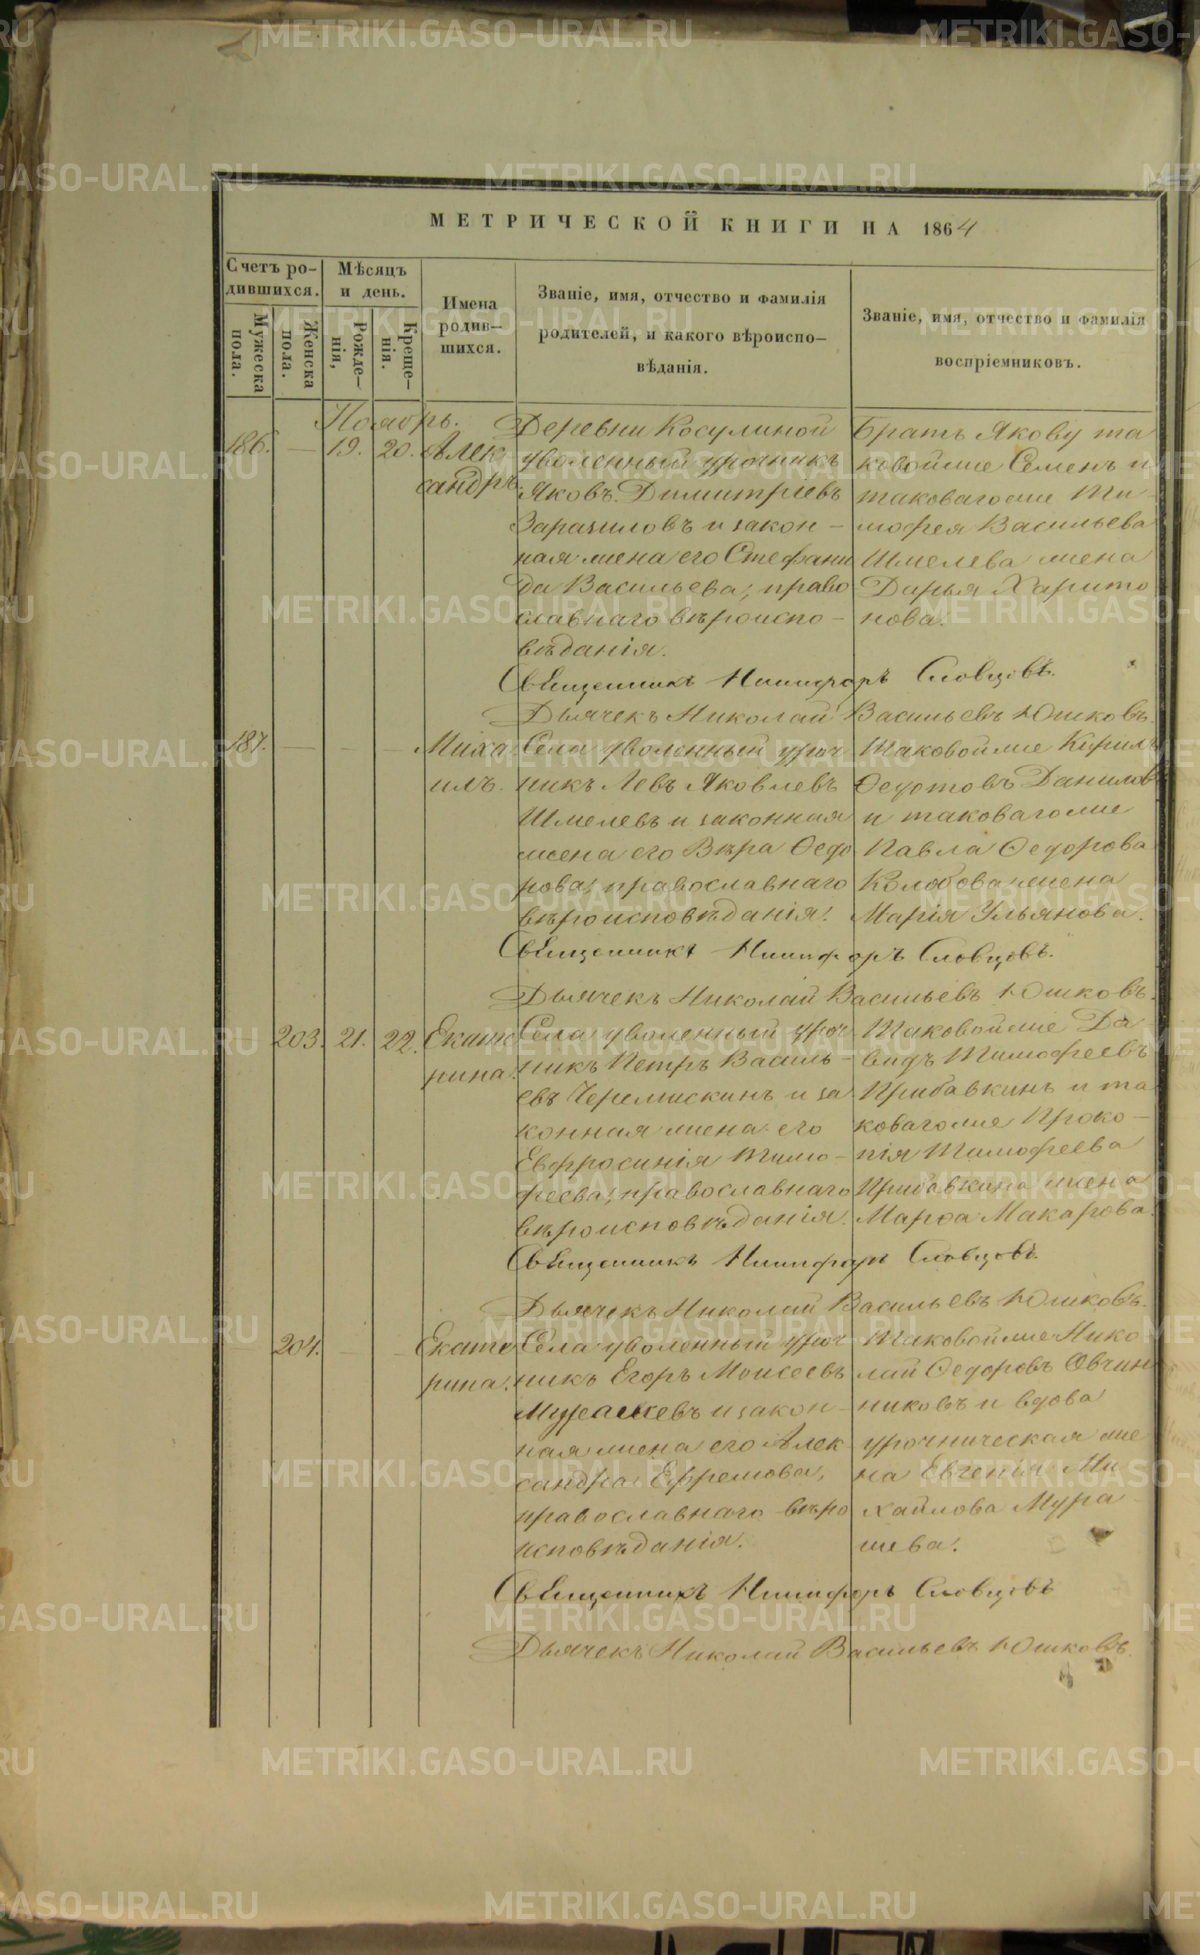 МЕТРИЧЕСКОЙ КНИГИ НА 1864
Счетъ ро-
дившихся.
Мужеска
пола.
Женска
пола.
Мѣсяцъ
и день.
Рожде-
нія,
Креще-
нія.
Имена
родив-
шихся.
Званіе, имя, отчество и фамилія
родителей, и какого вѣроиспо-
вѣданія.
Званіе, имя, отчество и фамилія
воспріемниковъ.
Ноябрь.
186. — 19. 20. Алек
сандръ.
Деревни Косулиной
уволенный урочникъ
Яковъ Димитріевъ
Заразиловъ и закон-
ная жена его Стефани
да Васильева, право
славнаго вѣроиспо-
вѣданія.
Братъ Якову та
ковойже Семенъ и
таковагоже Ти-
мофея Васильева
Шмелева жена
Дарья Харито
нова.
Священникъ Никифоръ Словцовъ.
Дьячекъ Николай Васильевъ Юшковъ.
187. — — — Миха
илъ.
Села уволенный уроч
никъ Левъ Яковлевъ
Шмелевъ и законная
жена его Вѣра Ѳедо
рова, православнаго
вѣроисповѣданія.
Таковойже Кирилъ
Ѳедотовъ Данилов
и таковагоже
Павла Ѳедорова
Колобова жена
Марія Ульянова.
Священникъ Никифоръ Словцовъ.
Дьячекъ Николай Васильевъ Юшковъ.
— 203. 21. 22. Екате
рина.
Села уволенный уроч
никъ Петръ Василь-
евъ Черемискинъ и за
конная жена его
Евфросинія Тимо-
феева, православнаго
вѣроисповѣданія.
Таковойже Да-
видъ Тимофеевъ
Прибавкинъ и та
ковагоже Проко-
пія Тимофеева
Прибавкина жена
Марѳа Макарова.
Священникъ Никифоръ Словцовъ.
Дьячекъ Николай Васильевъ Юшковъ.
204. — — Екате
рина.
Села уволенный уроч
никъ Егоръ Моисеевъ
Мурашевъ и закон-
ная жена его Алек
сандра Ефремова,
православнаго вѣро
исповѣданія.
Таковойже Нико
лай Ѳедоровъ Овчин
никовъ и вдова
урочническая же
на Евгенія Ми
хайлова Мура-
шева.
Священникъ Никифоръ Словцовъ
Дьячекъ Николай Васильевъ Юшковъ.
METRIKI.GASO-URAL.RU